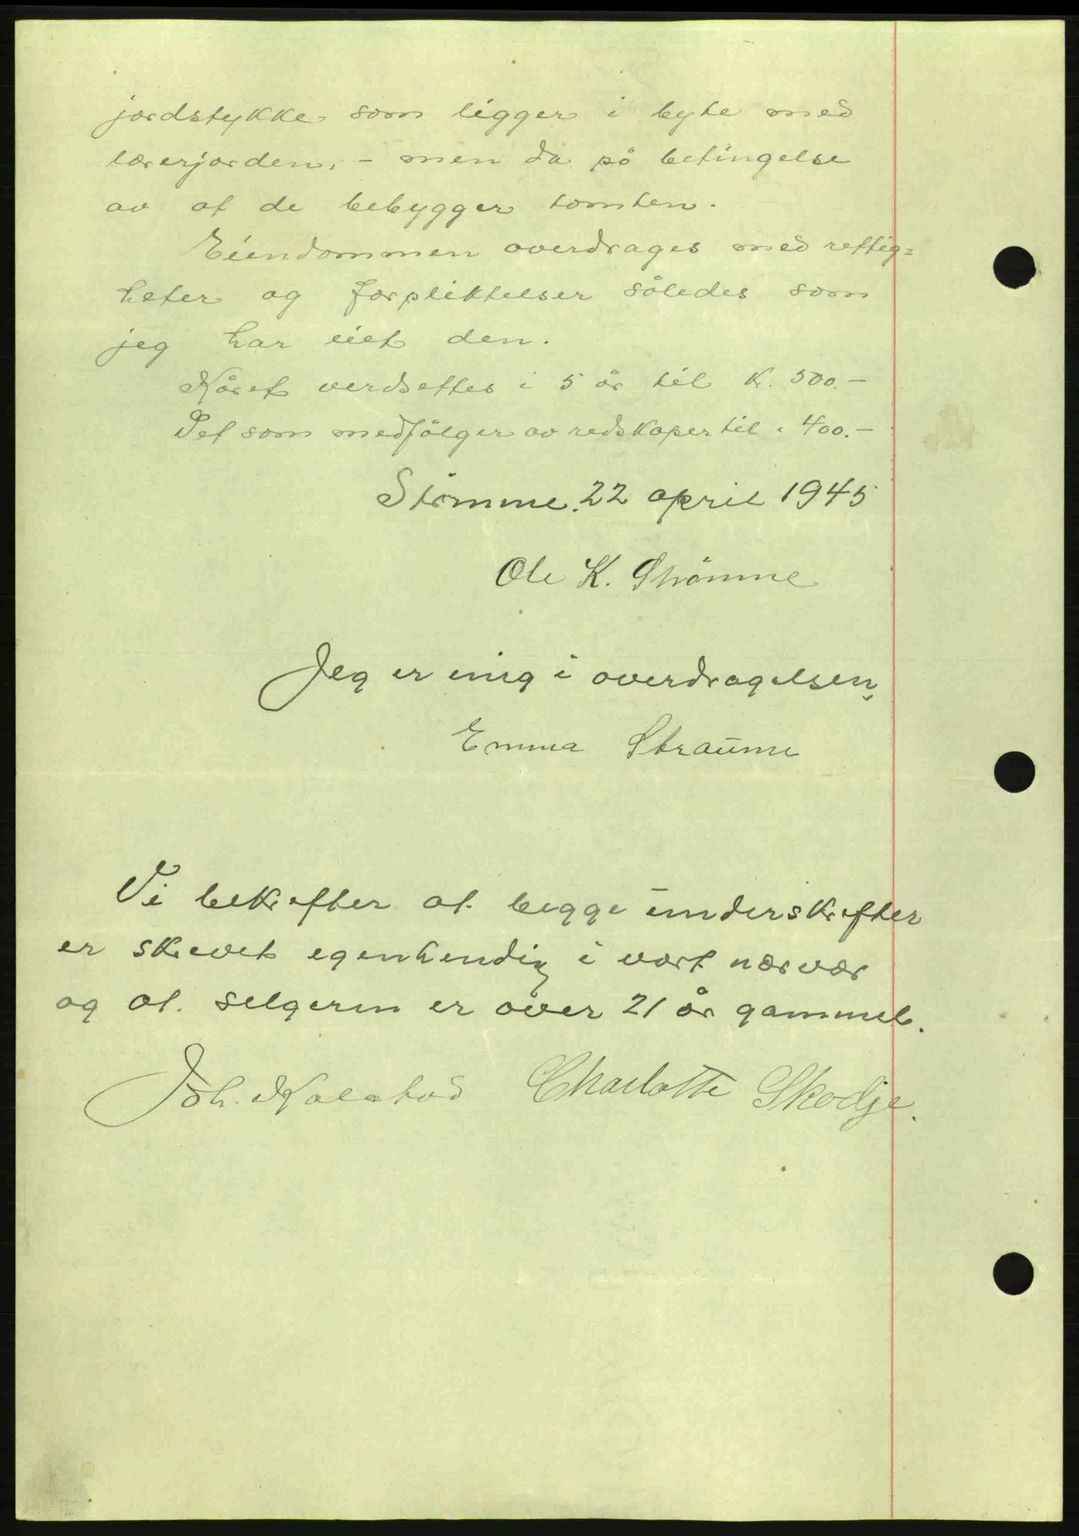 jordstykke som ligger i byte med
lærerjorden, - men da på betingelse
av at de bebygger tomten.
Eiendommen overdrages med rettig=
heter og forpliktelser således som
jeg har eiet den.
Kåret verdsettes i 5 år til kr. 500.-
Det som medfölger av redskaper til " 400.-
Strømme. 22 april 1945
Ole K. Strømme
Jeg er enig i overdragelsen,
Emma Straume
Vi bekrefter at begge underskrifter
er skrevet egenhendig i vort nærvær
og at selgeren er over 21 år gammel.
Joh. Kolstad Charlotte Skodje.